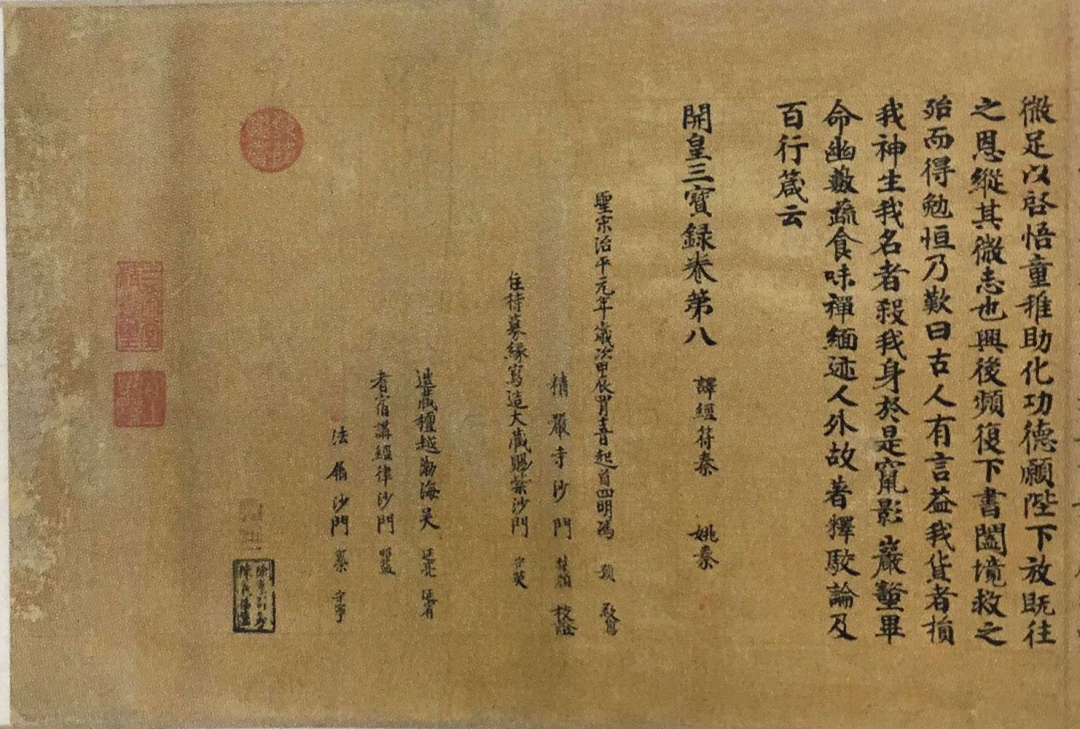 微足以啓悟童稚助化功德願陛下放既往
之恩縱其微志也興後頻復下書闔境救之
殆而得勉恒乃歎曰古人有言益我貨者損
我神生我名者殺我身於是竄影巖壑畢
命幽藪蔬食味禪緬迹人外故著釋駮論及
百行箴云
開皇三寶録卷第八 譯經苻秦 姚秦
聖宋治平元年歲次甲辰胃音起首四明馮
精嚴寺沙門 校證
住持募緣寫造大藏賜紫沙門 守英
造藏檀越渤海吴 延亮 延宥
耆宿講經律沙門
法屬沙門 守寧